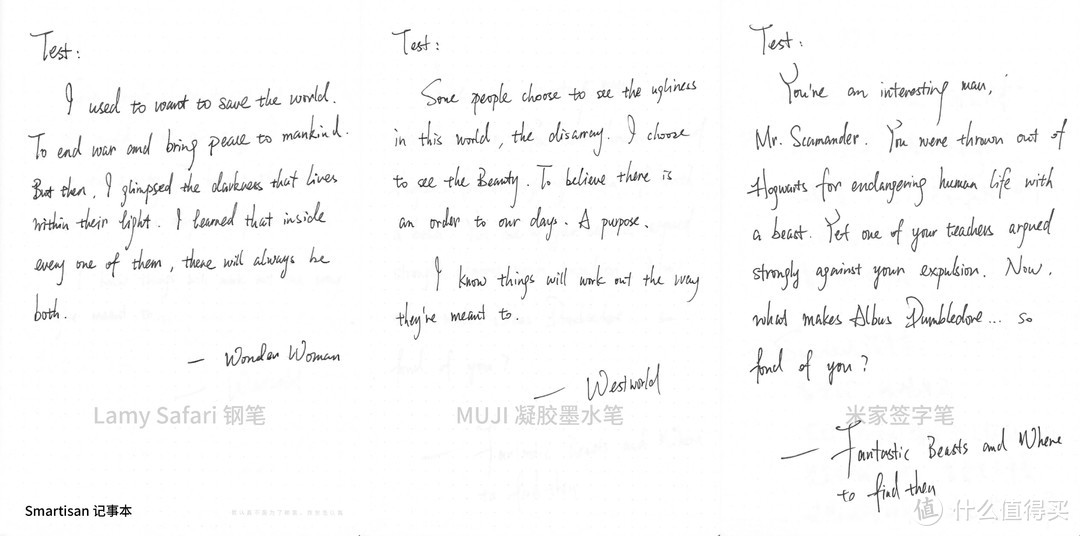 Test:
I used to want to save the world.
To end war and bring peace to mankind.
But then, I glimpsed the darkness that lives
within their light. I learned that inside
every one of them, there will always be
both.
— Wonder Woman
Lamy Safari 钢笔
Smartisan 记事本
Test:
Some people choose to see the ugliness
in this world, the disarray. I choose
to see the Beauty. To believe there is
an order to our days. A purpose.
I know things will work out the way
they're meant to.
— Westworld
MUJI 凝胶墨水笔
Test:
You're an interesting man,
Mr. Scamander. You were thrown out of
Hogwarts for endangering human life with
a beast. Yet one of your teachers argued
strongly against your expulsion. Now,
what makes Albus Dumbledore... so
fond of you?
米家签字笔
— Fantastic Beasts and Where
to find them
值 什么值得买